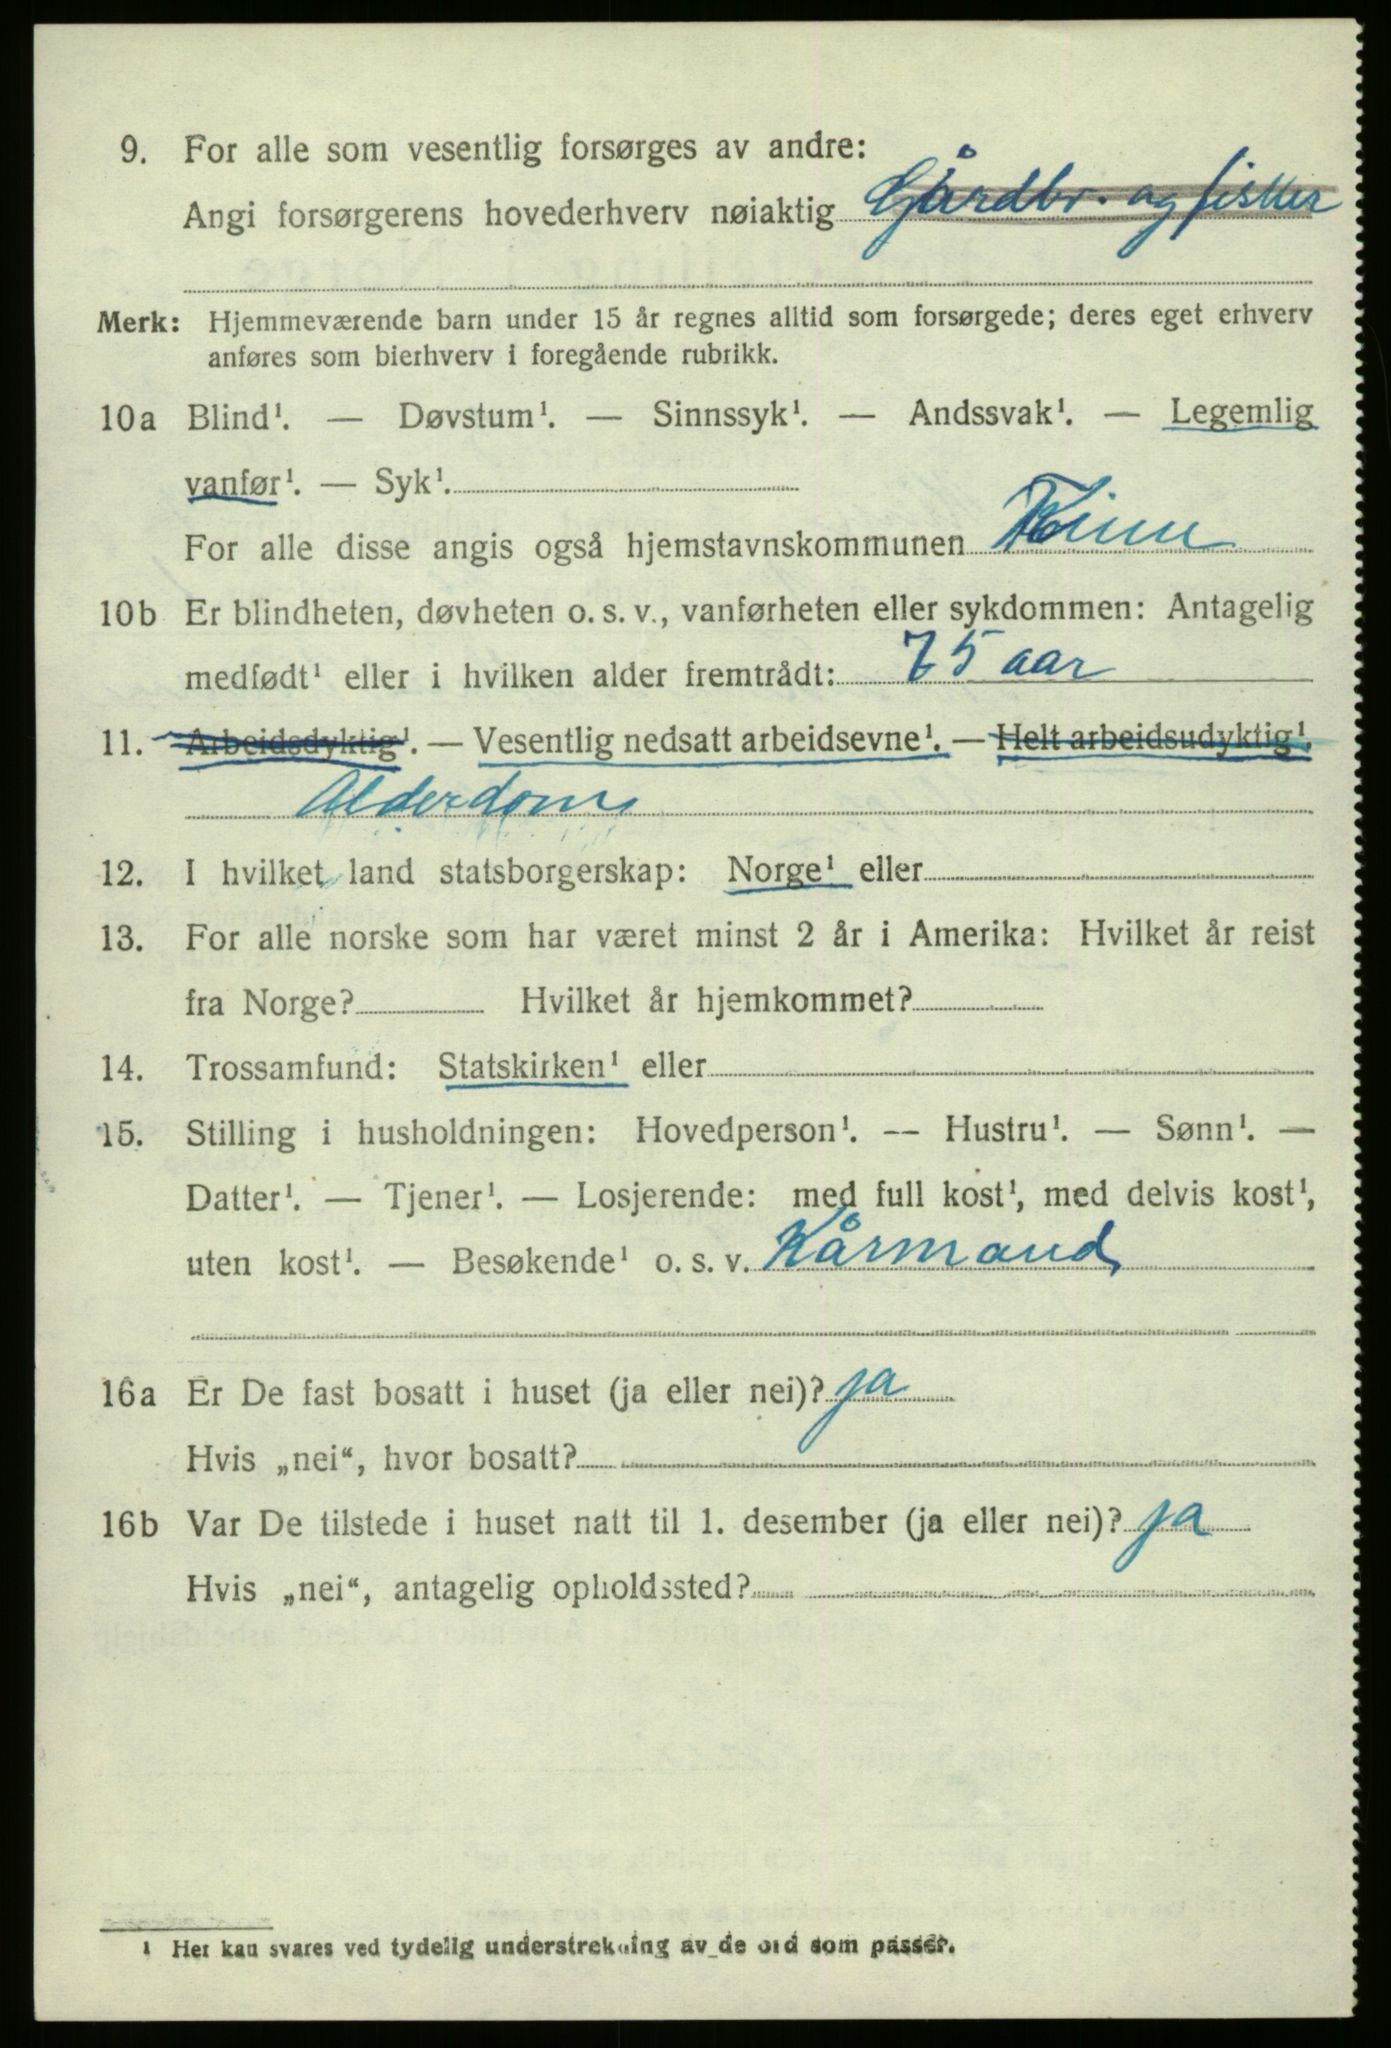 9. For alle som vesentlig forsørges av andre:
Angi forsørgerens hovederhverv nøiaktig Gårdbr. og fisker
Merk: Hjemmeværende barn under 15 år regnes alltid som forsørgede; deres eget erhverv
anføres som bierhverv i foregående rubrikk.
10a Blind¹. — Døvstum¹. — Sinnssyk¹. — Andssvak¹. — Legemlig
vanfør¹. — Syk¹.
For alle disse angis også hjemstavnskommunen Kinn
10b Er blindheten, døvheten o. s. v., vanførheten eller sykdommen: Antagelig
medfødt¹ eller i hvilken alder fremtrådt: 75 aar
11. Arbeidsdyktig¹. — Vesentlig nedsatt arbeidsevne¹. — Helt arbeidsudyktig¹.
Alderdoms
12. I hvilket land statsborgerskap: Norge¹ eller
13. For alle norske som har været minst 2 år i Amerika: Hvilket år reist
fra Norge? Hvilket år hjemkommet?
14. Trossamfund: Statskirken¹ eller
15. Stilling i husholdningen: Hovedperson¹. — Hustru¹. — Sønn¹. —
Datter¹. — Tjener¹. — Losjerende: med full kost¹, med delvis kost¹,
uten kost¹. — Besøkende¹ o. s. v. Kårmand
16a Er De fast bosatt i huset (ja eller nei)? ja
Hvis „nei“, hvor bosatt?
16b Var De tilstede i huset natt til 1. desember (ja eller nei)? ja
Hvis „nei“, antagelig opholdssted?
¹ Her kan svares ved tydelig understrekning av de ord som passer.